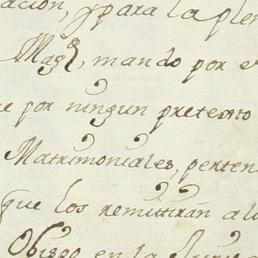 ación, y para la plen
Magd, mando por e
e por ningun pretexto
Matrimoniales, perten
que los remittirán a l
Obispo en la